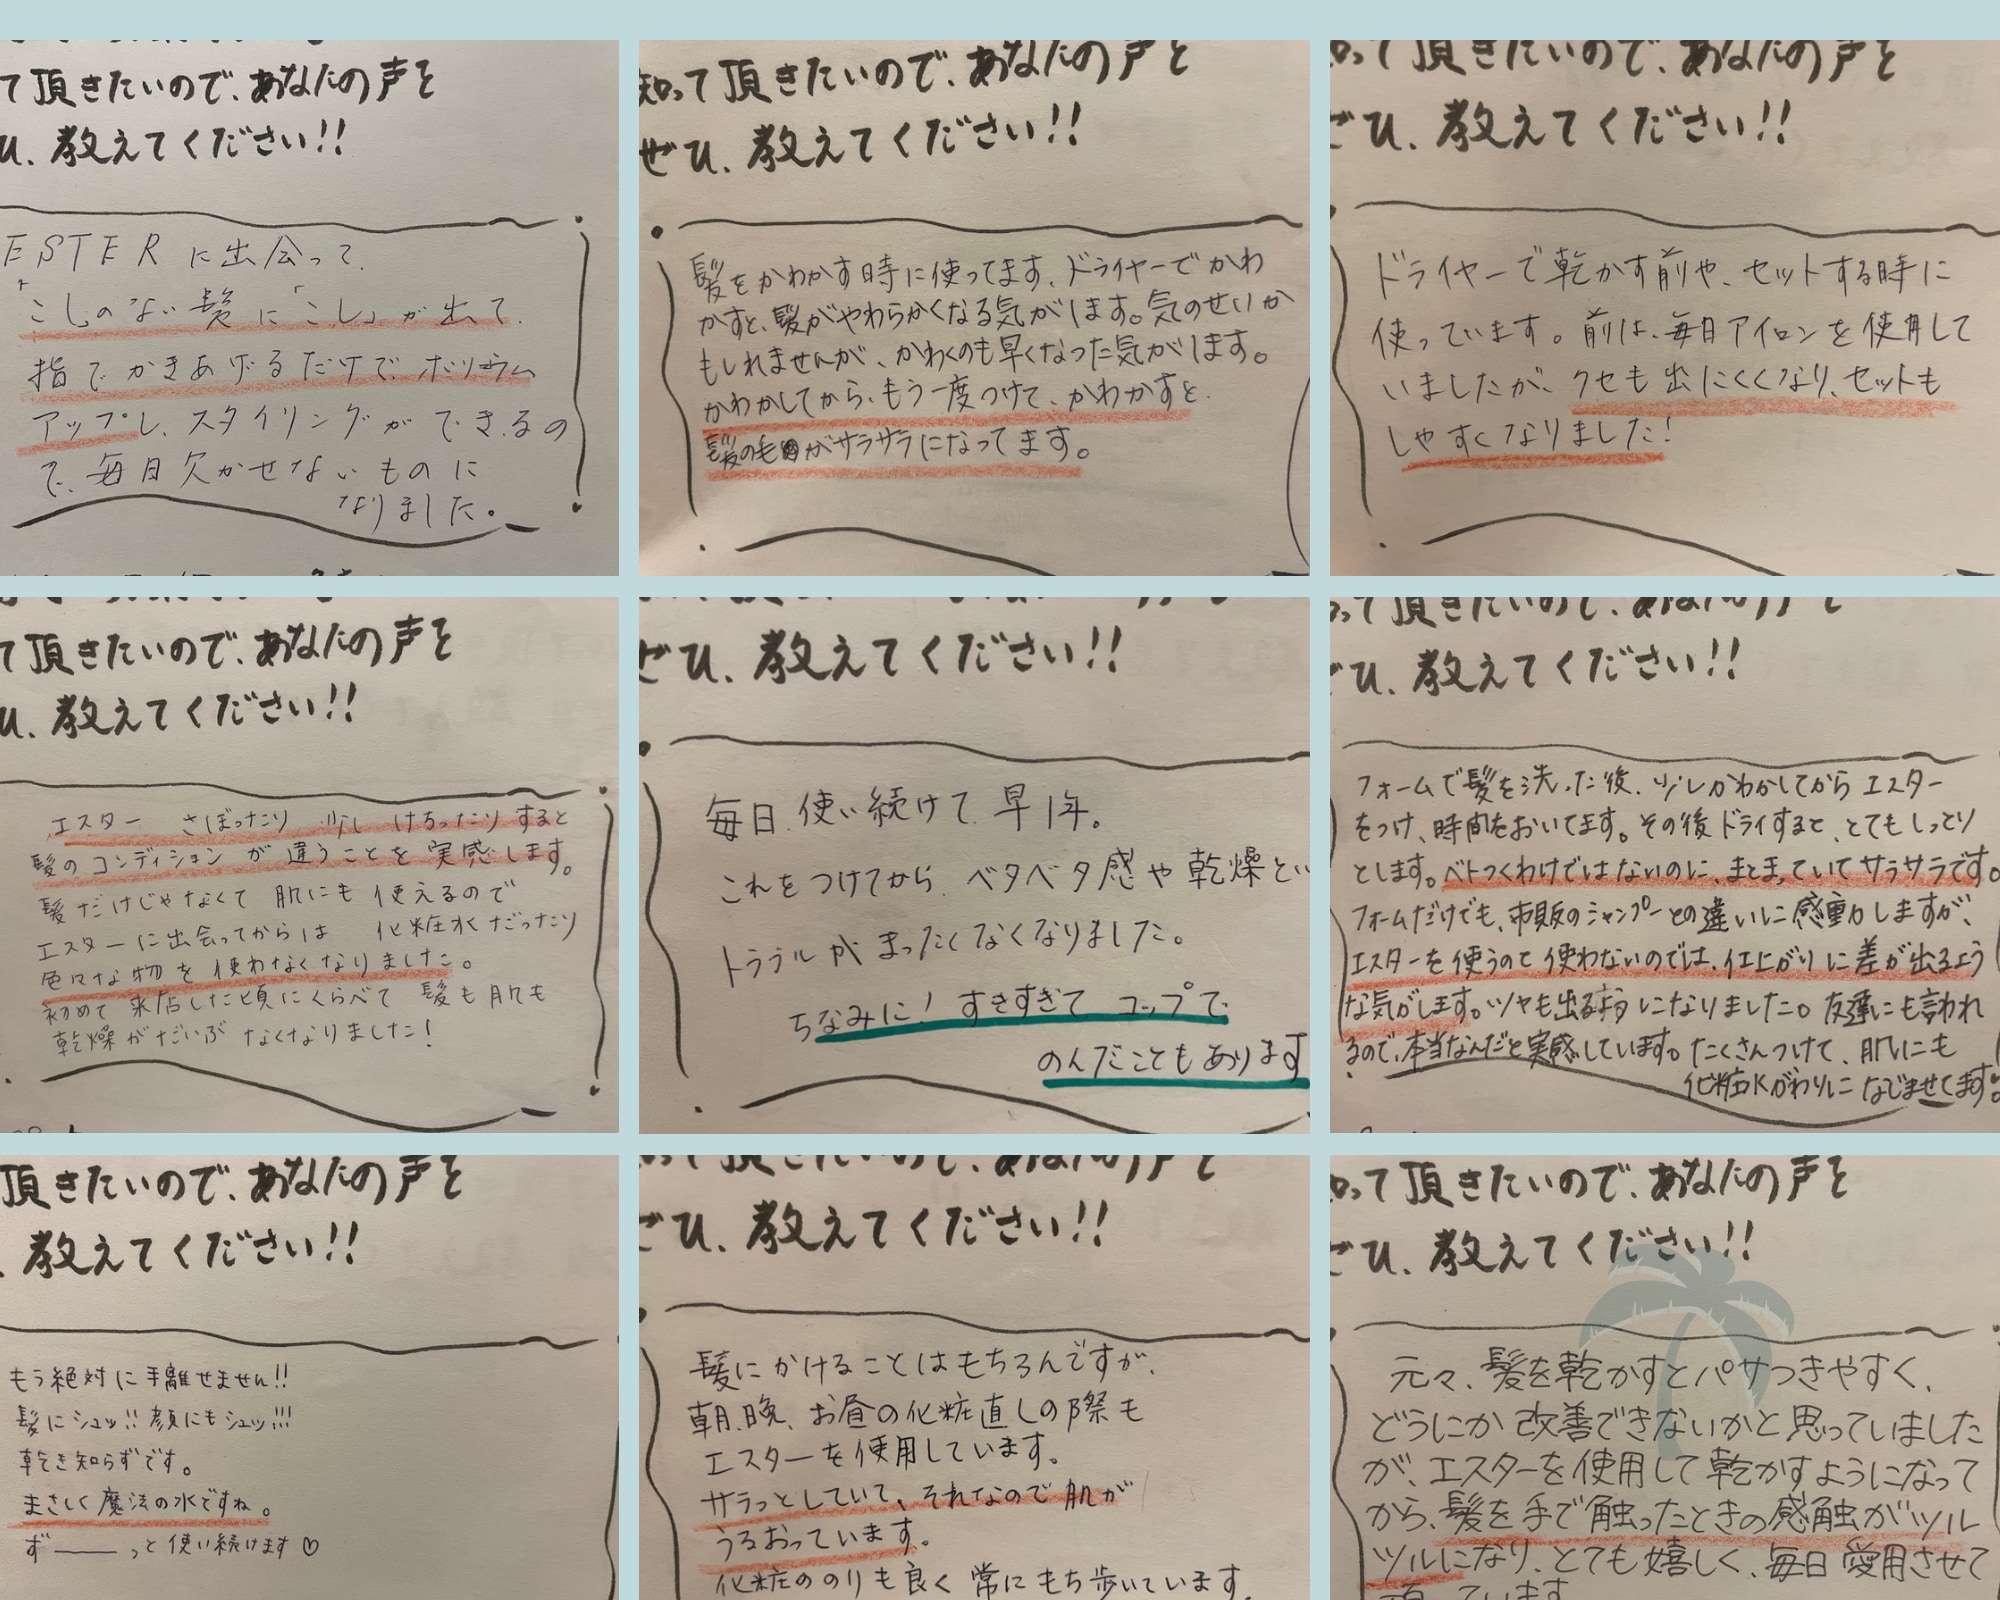 て頂きたいので、あなたの声を
ひ、教えてください!!
ESTERに出会って、
「こしのない髪に「こし」が出て、
指でかきあげるだけでボリウム
アップし、スタイリングができるの
で、毎日欠かせないものに
なりました。
知って頂きたいので、あなたの声を
ぜひ、教えてください!!
髪をかわかす時に使ってます、ドライヤーでかわ
かすと、髪がやわらかくなる気がします。気のせいか
もしれませんが、かわくのも早くなった気がします。
かわかしてから、もう一度つけて、かわかすと、
髪の毛がサラサラになってます。
って頂きたいので、あなたの声を
ぜひ、教えてください!!
ドライヤーで乾かす前や、セットする時に
使っています。前は、毎日アイロンを使用して
いましたが、クセも出にくくなり、セットも
しやすくなりました!
て頂きたいので、あなたの声を
ひ、教えてください!!
エスター さぼったり 少しけちったりすると
髪のコンディションが違うことを実感します。
髪だけじゃなくて 肌にも使えるので
エスターに出会ってからは 化粧水だったり
色々な物を使わなくなりました。
初めて来店した頃にくらべて 髪も肌も
乾燥がだいぶなくなりました!
ぜひ、教えてください!!
毎日、使い続けて、早1年。
これをつけてから、ベタベタ感や乾燥とい
トラブルがまったくなくなりました。
ちなみに!すきすぎてコップで
のんだこともあります
って頂きたいので、あなたの声を
ぜひ、教えてください!!
フォームで髪を洗った後、少しかわかしてからエスター
をつけ、時間をおいてます。その後ドライすると、とてもしっとり
とします。ベトつくわけではないのに、まとまっていてサラサラです。
フォームだけでも、市販のシャンプーとの違いに感動しますが、
エスターを使うのと使わないのでは、仕上がりに差が出るよう
な気がします。ツヤも出る髪になりました。友達にも言われ
るので、本当なんだと実感しています。たくさんつけて、肌にも
化粧水がわりになじませてます。
頂きたいので、あなたの声を
、教えてください!!
もう絶対に手離せません!!
髪にシュッ!!顔にもシュッ!!!
乾き知らずです。
まさしく魔法の水ですね。
ず――っと使い続けます♡
って頂きたいので、あなたの声を
ぜひ、教えてください!!
髪にかけることはもちろんですが、
朝、晩、お昼の化粧直しの際も
エスターを使用しています。
サラっとしていて、それなので肌が
うるおっています。
化粧ののりも良く常にもち歩いています。
知って頂きたいので、あなたの声を
ぜひ、教えてください!!
元々、髪を乾かすとパサつきやすく、
どうにか改善できないかと思っていました
が、エスターを使用して乾かすようになって
から、髪を手で触ったときの感触がツル
ツルになり、とても嬉しく、毎日愛用させて
頂いています